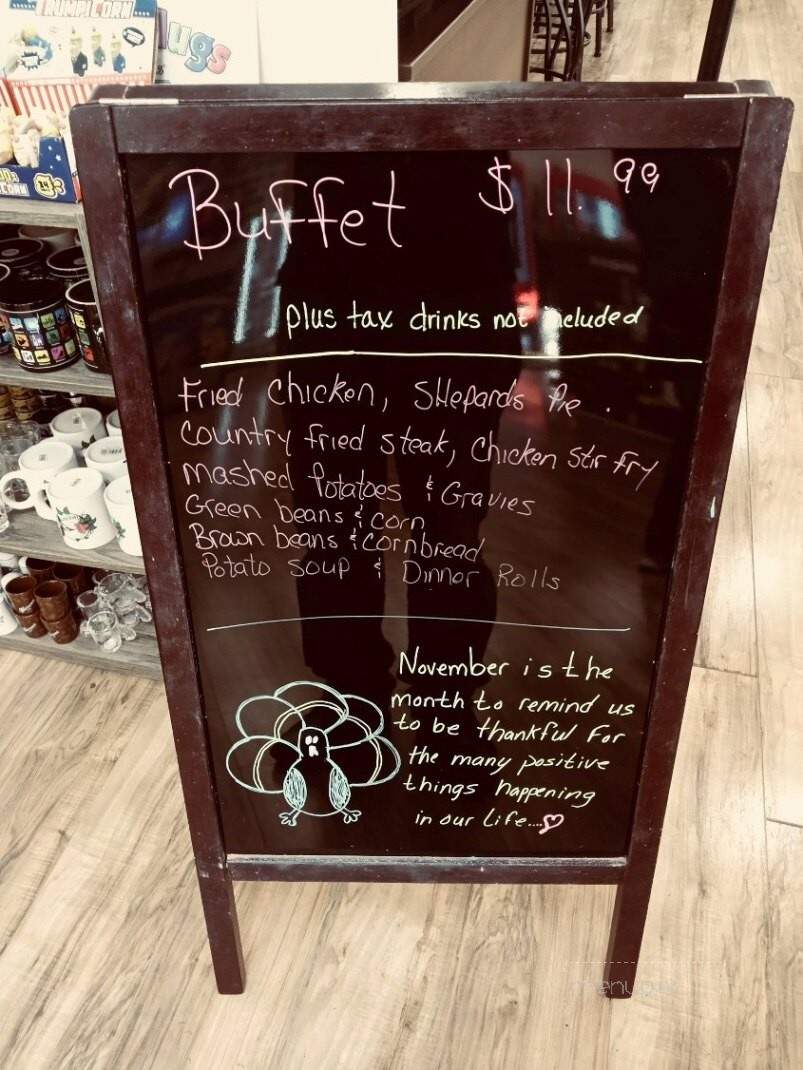 RUMPLCORN
Mugs
Buffet $11.99
plus tax drinks not included
Fried Chicken, SHepards Pie.
Country fried steak, Chicken Stir Fry
mashed Potatoes & Gravies
Green beans & corn
Brown beans & cornbread
Potato Soup & Dinner Rolls
November is the
month to remind us
to be thankful for
the many positive
things happening
in our life....